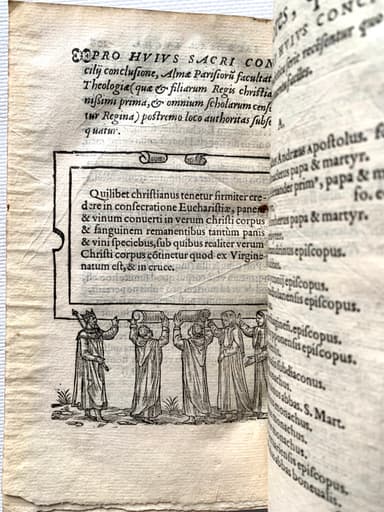 PRO HVIVS SACRI CON
cilij conclusione, Almæ Parisiorũ facultat
Theologiæ (quæ & filiarum Regis christia
nißimi prima, & omnium scholarum cense
tur Regina) postremo loco authoritas subse
quatur.
Quilibet christianus tenetur firmiter cre
dere in consecratione Eucharistiæ, panem
& vinum conuerti in verum christi corpus
& sanguinem remanentibus tantùm panis
& vini speciebus, sub quibus realiter verum
Christi corpus cõtinetur quod ex Virgine
natum est, & in cruce.
A.
Andræas Apostolus.
papa & martyr.
ander primᵒ, papa & m
papa & martyr.
episcopus.
episcopus.
episcopus.
episcopus.
episcopus.
subdiaconus.
abbas. S. Mart.
monachus.
monachus.
episcopus.
abbas boneualis.